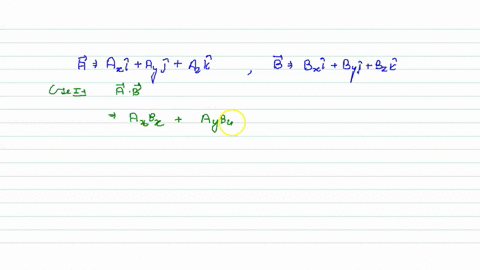 A⃗ ⇒ Aₓî + A_yĵ + A_zk̂ , B⃗ ⇒ Bₓî + B_yĵ + B_zk̂
Case I → A⃗·B⃗
⇒ AₓBₓ + A_yB_y